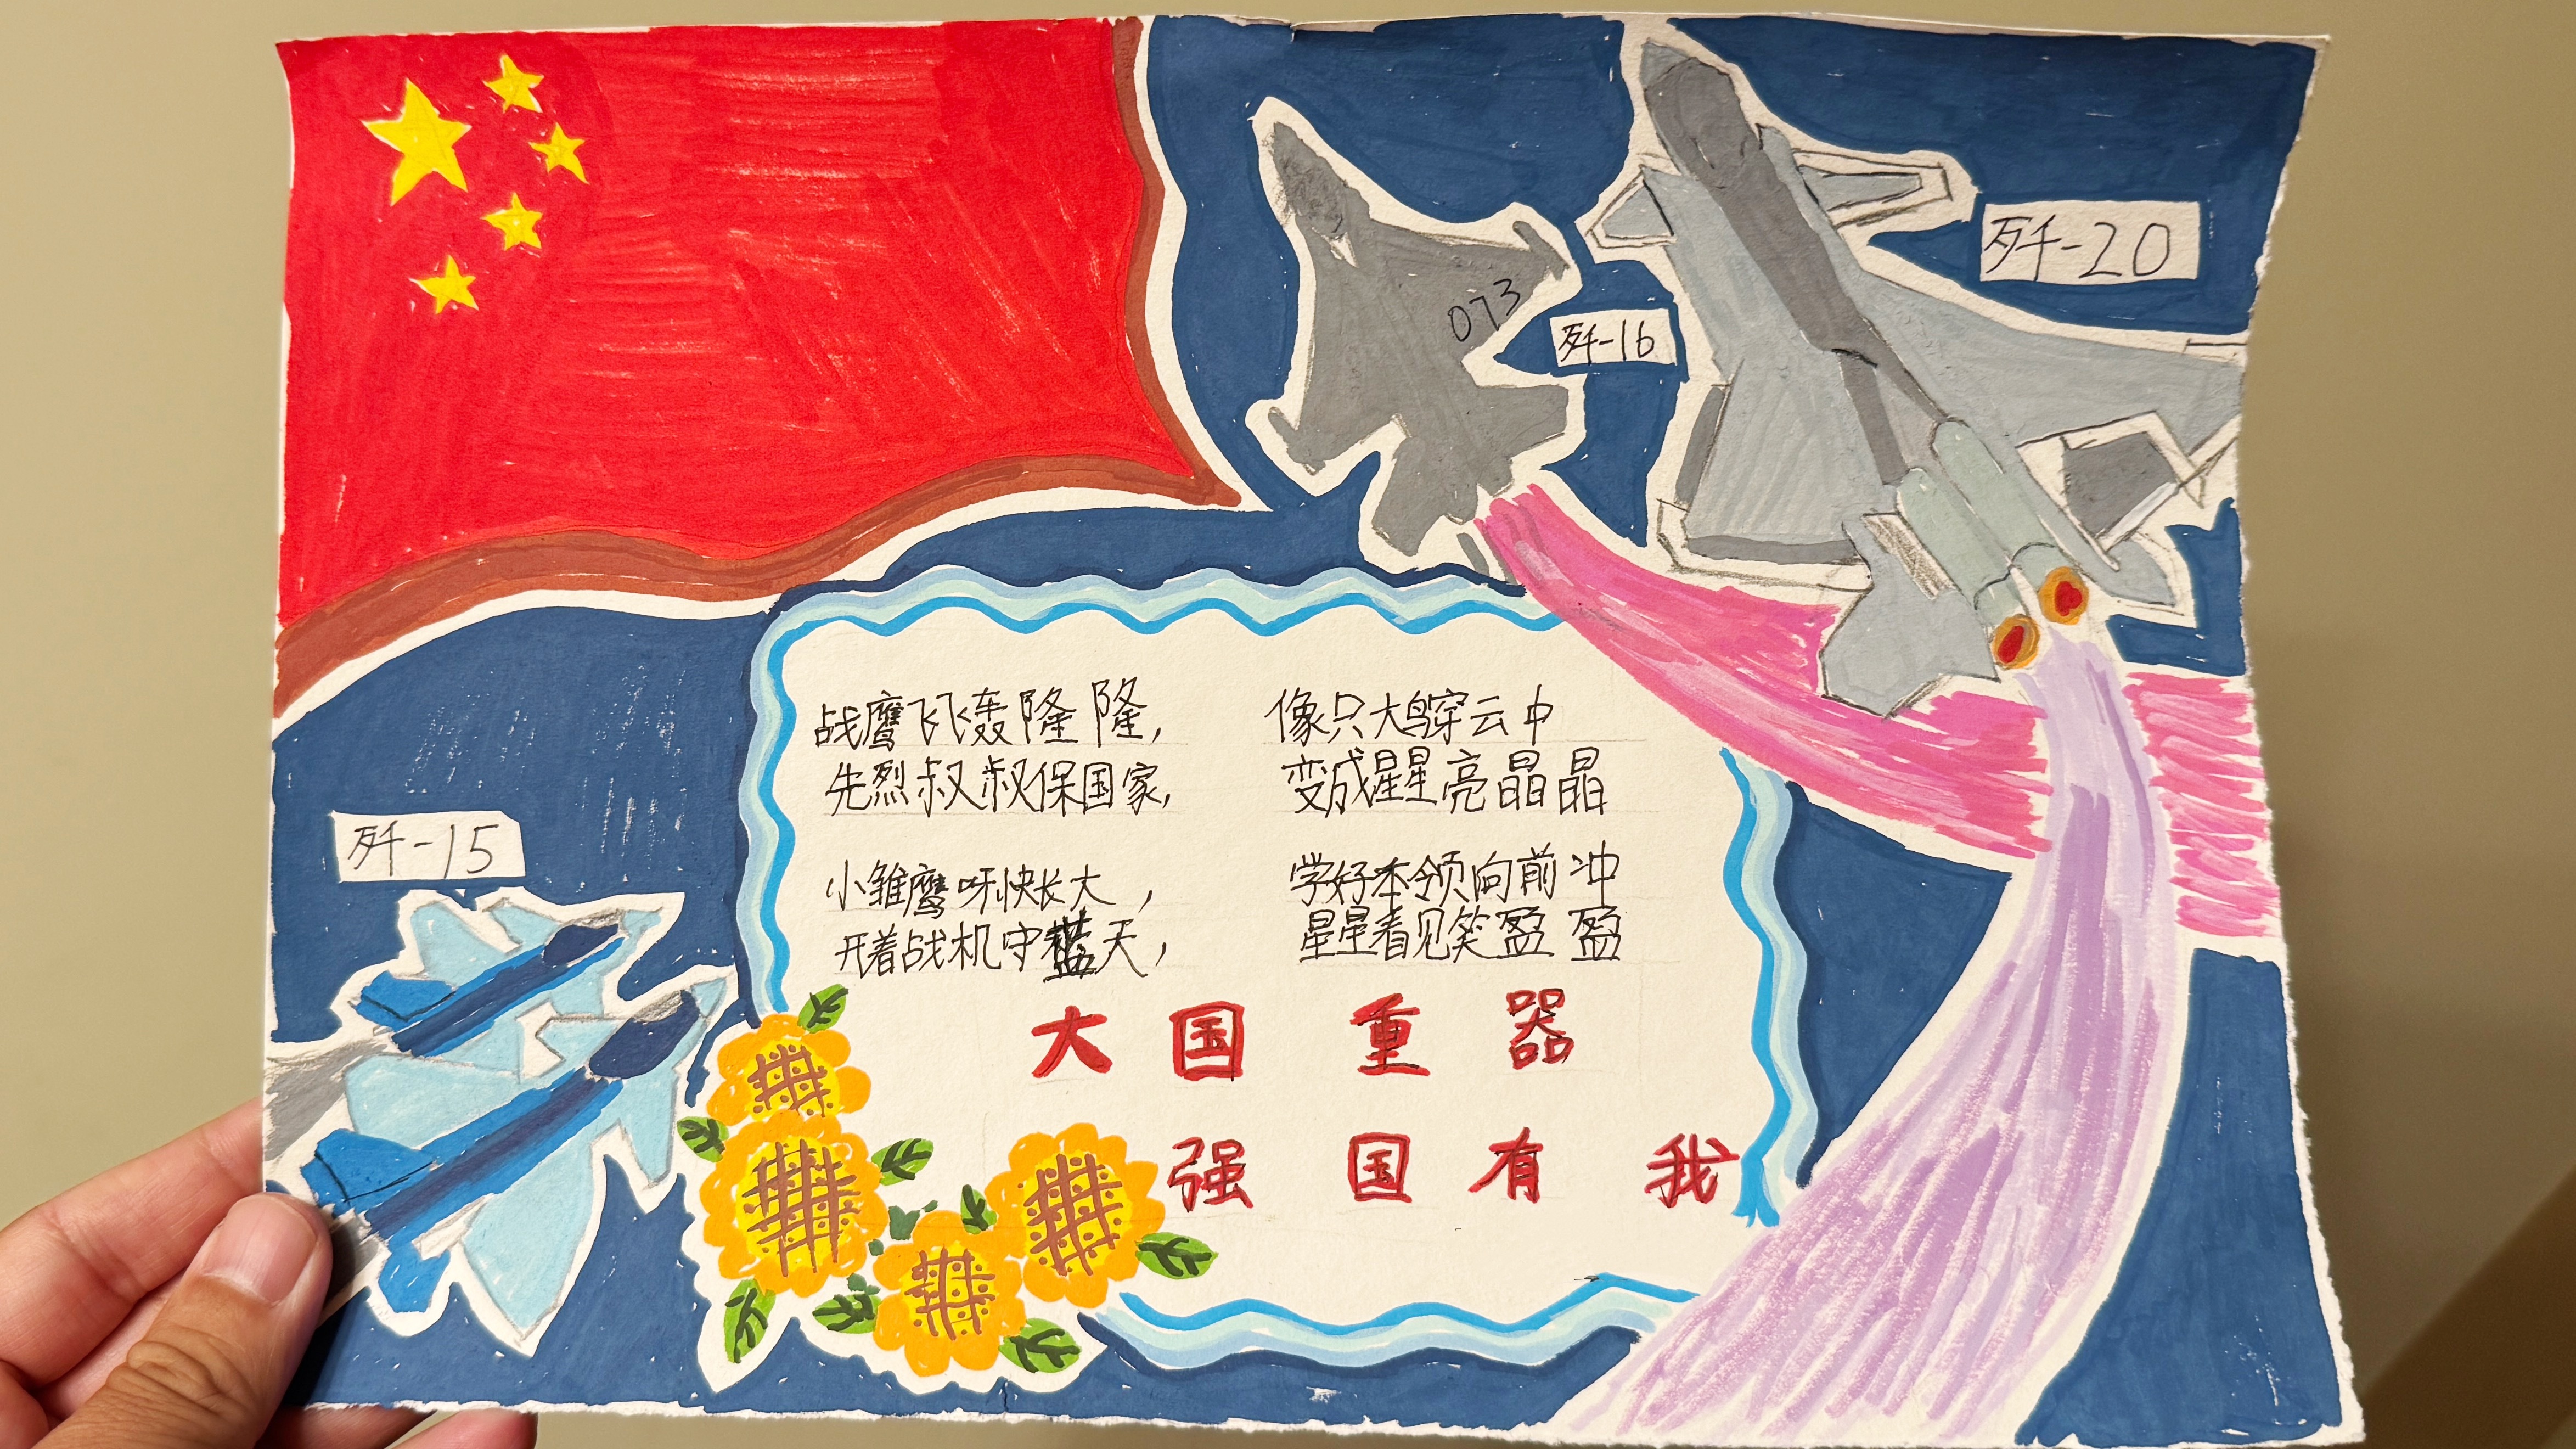 歼-20
073
歼-16
战鹰飞飞轰隆隆, 像只大鸟穿云中
先烈叔叔保国家, 变成星星亮晶晶
歼-15
小雏鹰呀快长大, 学好本领向前冲
开着战机守蓝天, 星星看见笑盈盈
大国重器
强国有我